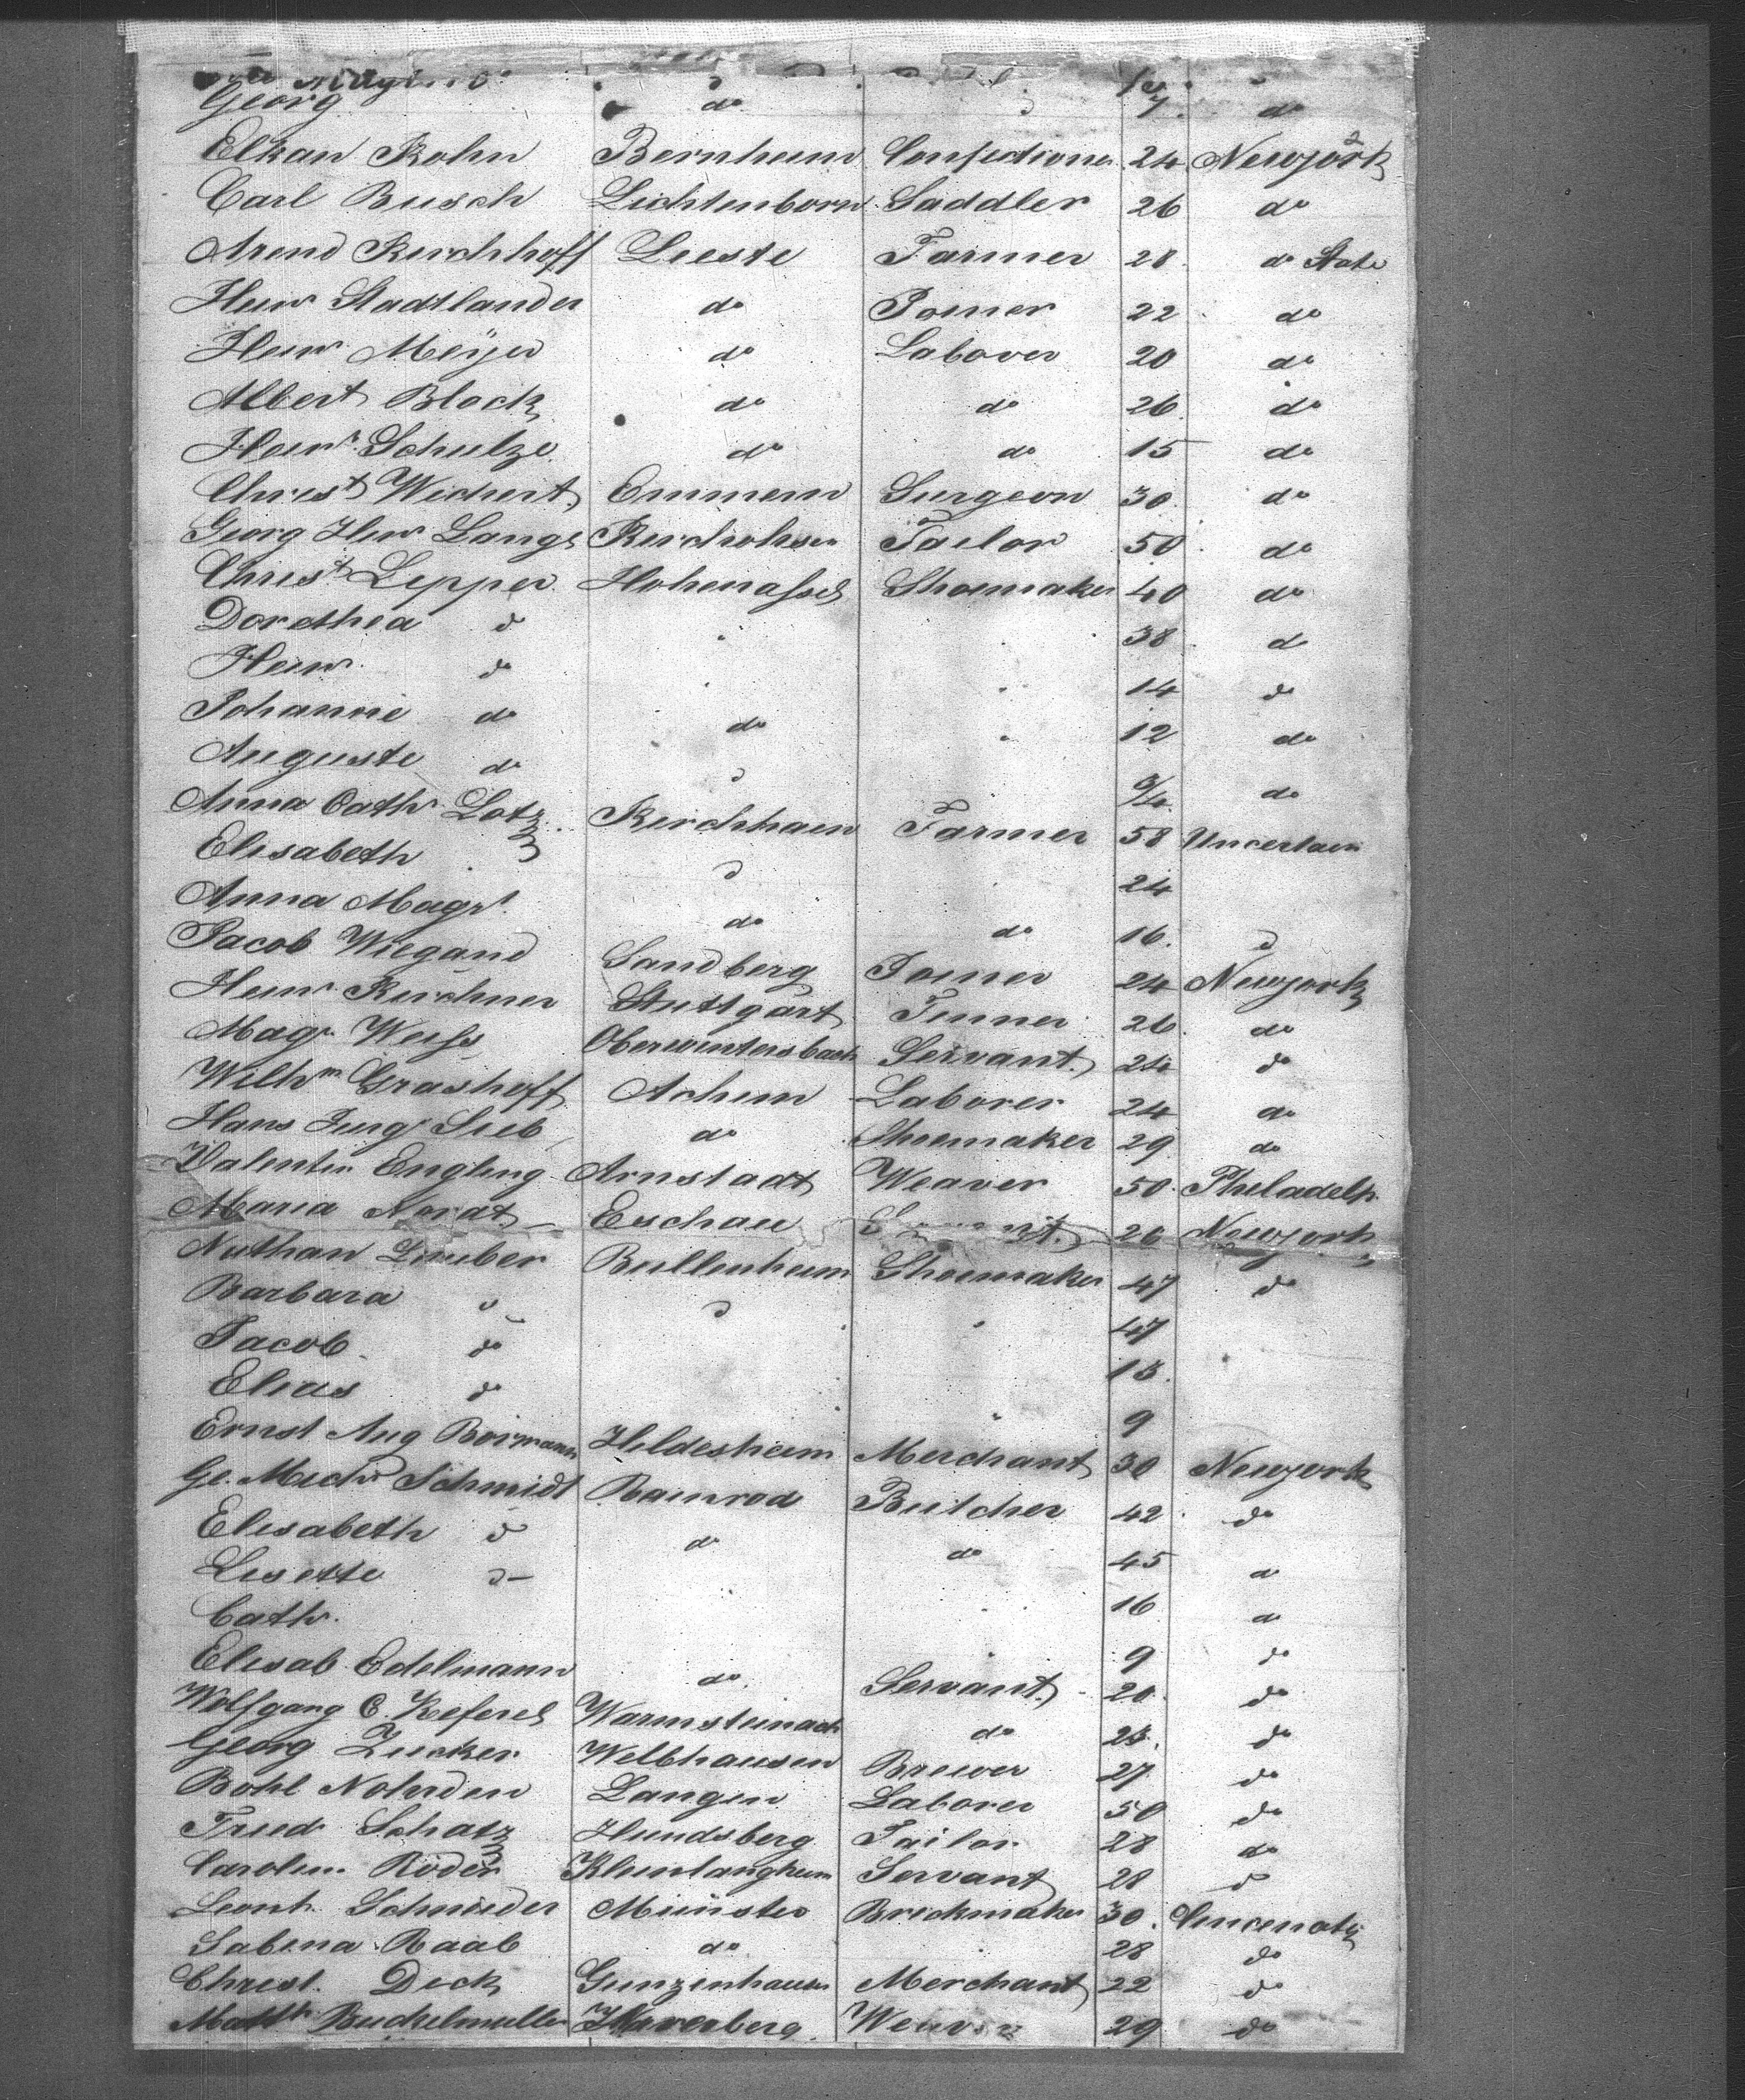 Georg do do
Elkan Kohn Bernheim Confectioner 24 Newyork
Carl Busch Lichtenborn Saddler 26 do
Arend Kirchhoff Leeste Farmer 28 do State
Heinr Stadtlander do Joiner 22 do
Heinr Meyer do Laborer 20 do
Albert Block do do 26 do
Heinr. Schulze do do 15 do
Christ Wichert Emmern Surgeon 30 do
Georg Heinr Lange Kirchohsen Tailor 50 do
Christ Lepper Hohenassel Shoemaker 40 do
Dorothea do 38 do
Heinr. do 14 do
Johanne do do 12 do
Auguste do do 9/12 do
Anna Cath. Lotz Kirchhain Farmer 58 Uncertain
Elisabeth do 24
Anna Magr. do do 16 do
Jacob Wiegand Sandberg Joiner 24 Newyork
Heinr. Kirchner Stuttgart Tinner 26 do
Magr. Weiss Oberwintersbach Servant 24 do
Wilhm Grashoff Achim Laborer 24 do
Hans Jürg Lieb do Shoemaker 29 do
Valentin Engling Arnstadt Weaver 50 Philadelp.
Maria Eschau 26 Newyork
Nathan Lauber Bullenheim Shoemaker 47 do
Barbara do do 47
Jacob do 13
Elias do 9
Ernst Aug Bormann Hildesheim Merchant 30 Newyork
Ge. Mich. Schmidt Rainrod Butcher 42 do
Elisabeth do do do 45 do
Lisette do 16 do
Cath. 9 do
Elisab Edelmann do Servant 20 do
Wolfgang C. Keferel Warmsteinach do 23 do
Georg Zucker Welbhausen Brewer 27 do
Bohl Nohrden Langen Laborer 50 do
Fried Schatz Hundsberg Tailor 28 do
Carolin. Röder Kleinlangheim Servant 28 do
Leonh. Schneider Münster Brickmaker 30 Cincinati
Sabina Raab do 28 do
Christ. Deck Gunzenhausen Merchant 22 do
Matth. Buckelmuller Weaver 29 do